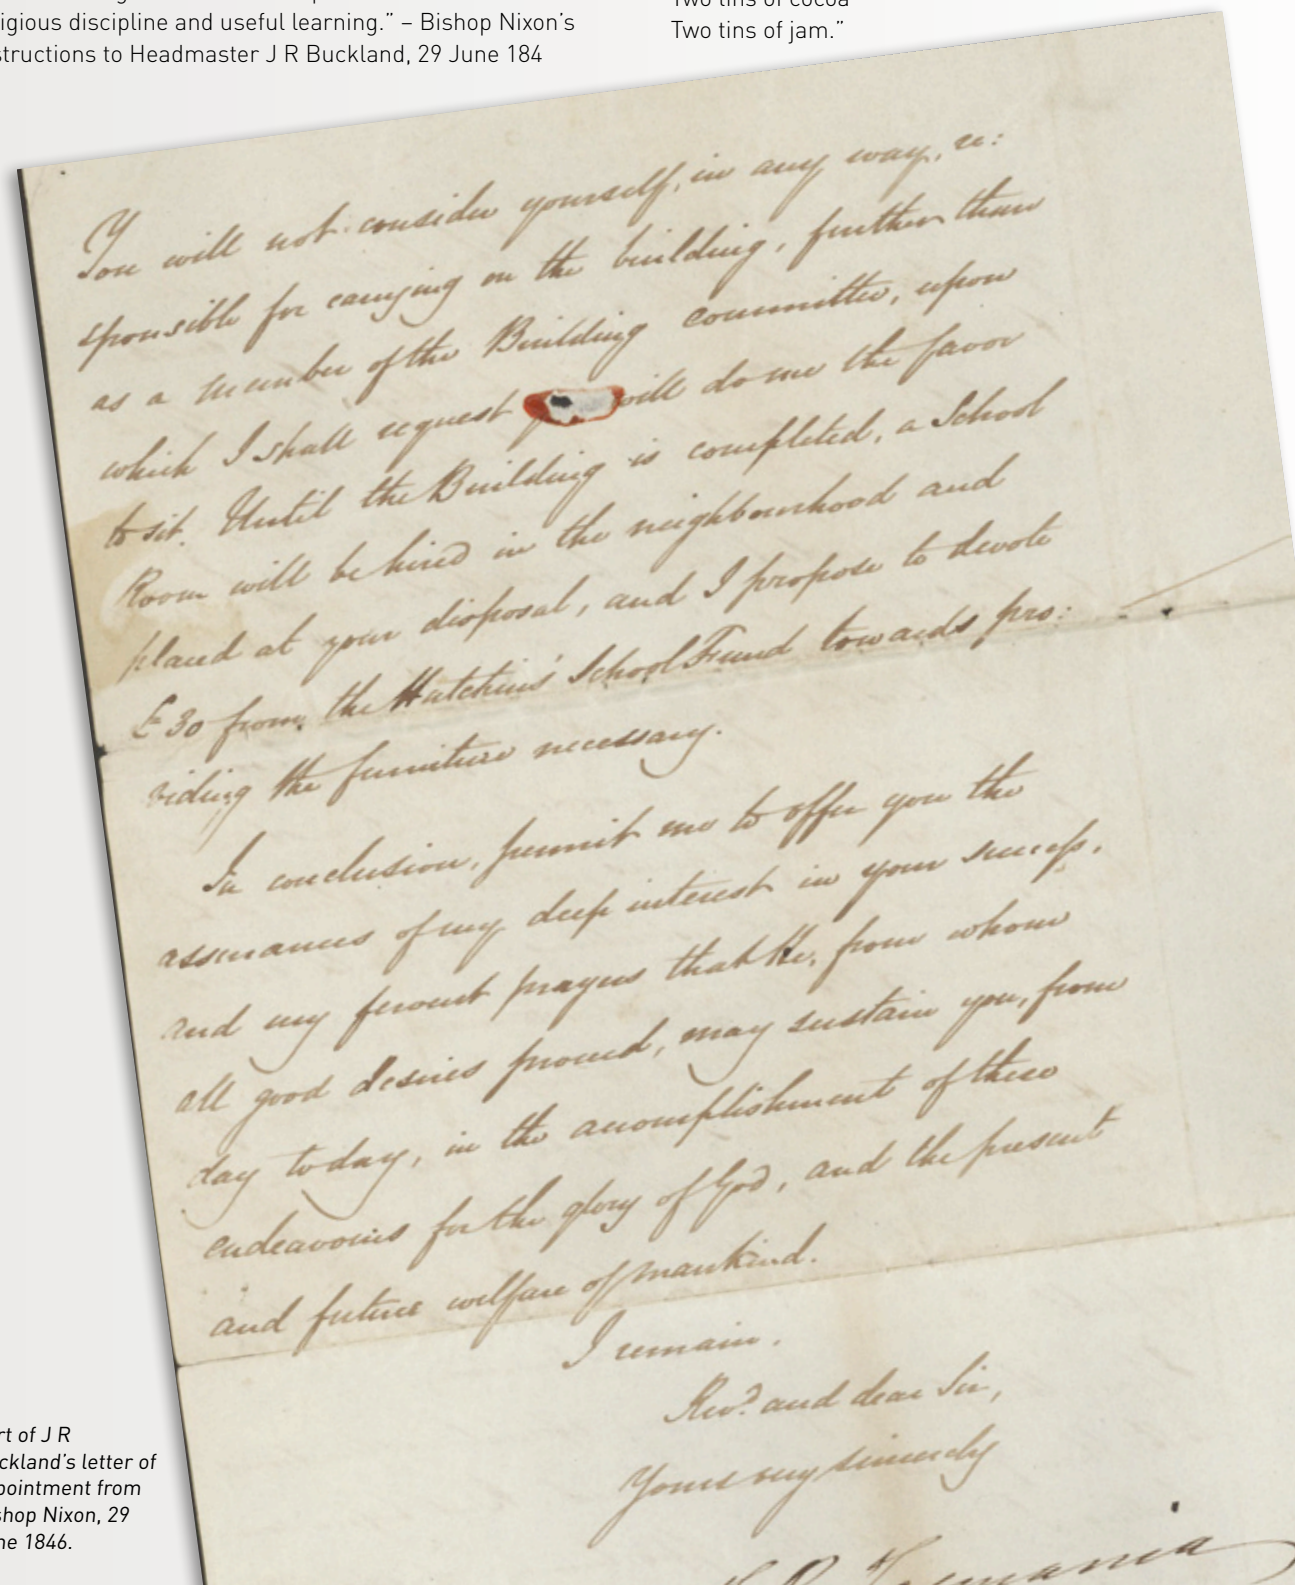 igious discipline and useful learning.” – Bishop Nixon’s
structions to Headmaster J R Buckland, 29 June 184
Two tins of cocoa
Two tins of jam.”
You will not consider yourself, in any way, re:
sponsible for carrying on the building, further than
as a member of the Building committee, upon
which I shall request will do me the favor
to sit. Until the Building is completed, a School
Room will be hired in the neighbourhood and
placed at your disposal, and I propose to devote
£30 from the Hutchins' School Fund towards pro:
viding the furniture necessary.
In conclusion, permit me to offer you the
assurances of my deep interest in your success,
and my fervent prayers that He, from whom
all good desires proceed, may sustain you, from
day to day, in the accomplishment of these
endeavours for the glory of God, and the present
and future welfare of mankind.
I remain.
Revd. and dear Sir,
Yours very sincerely
F. R. Tasmania
rt of J R
ckland’s letter of
pointment from
shop Nixon, 29
ne 1846.